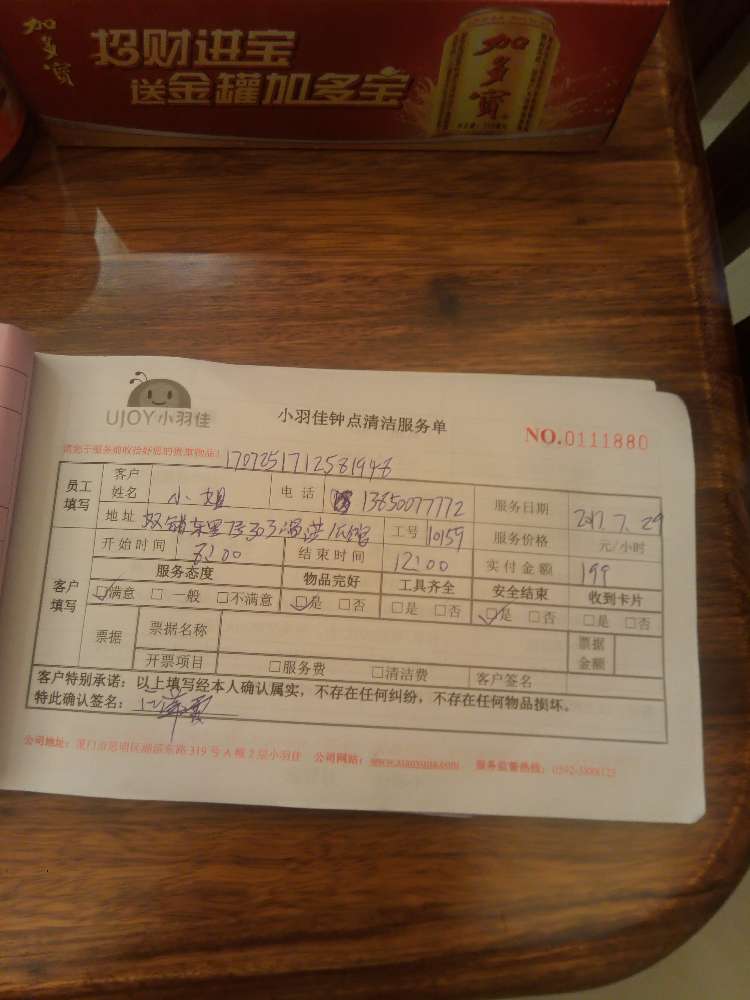 加多宝
招财进宝
送金罐加多宝
加多寶
UJOY小羽佳
小羽佳钟点清洁服务单
NO.0111880
请您于服务前收捡好您的贵重物品!
170725171258194-8
员工填写
客户姓名 小姐 电话 13650077772 服务日期 2017.7.29
地址 工号 10159 服务价格 元/小时
开始时间 8:00 结束时间 12:00 实付金额 199
客户填写
服务态度 物品完好 工具齐全 安全结束 收到卡片
☑满意 □一般 □不满意 ☑是 □否 □是 □否 ☑是 □否 □是 □否
票据 票据名称 票据金额
开票项目 □服务费 □清洁费 客户签名
客户特别承诺:以上填写经本人确认属实,不存在任何纠纷,不存在任何物品损坏。
特此确认签名:
公司地址:厦门市思明区湖滨东路319号A幢2层小羽佳 公司网站:www.xiaoyujia.com 服务监督热线: